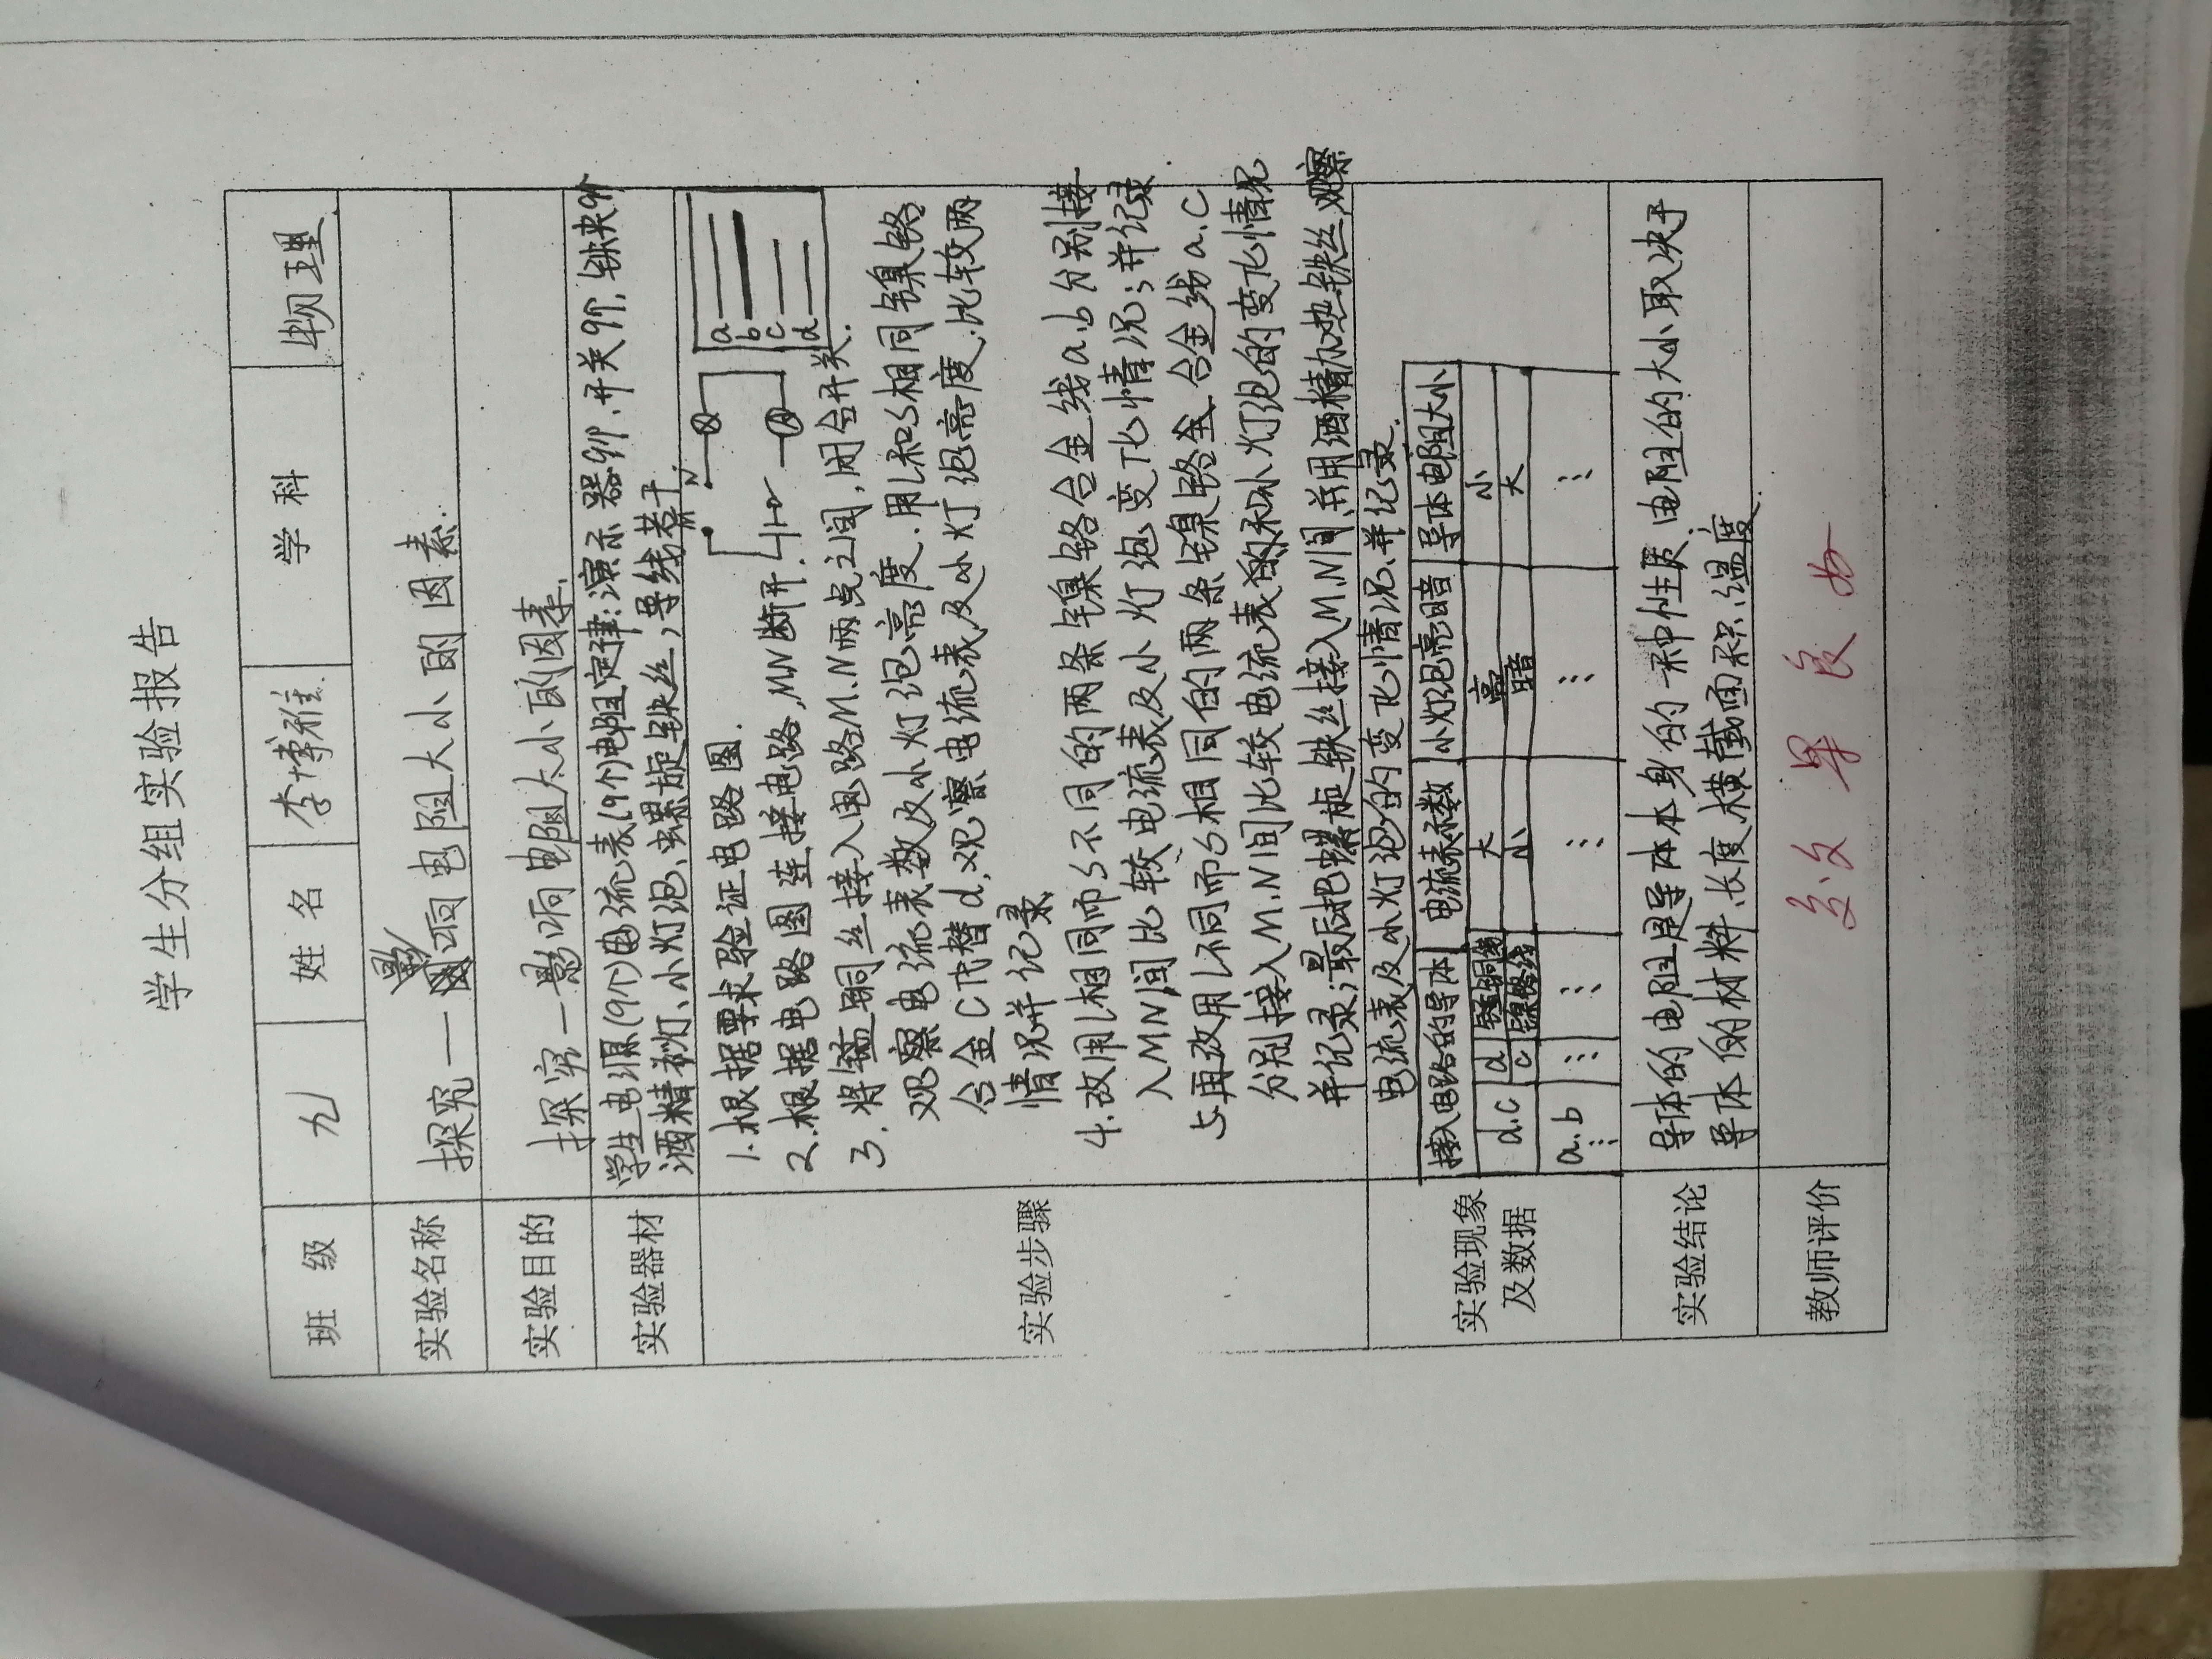 学生分组实验报告
班 级 九 姓 名 李博雅 学 科 物理
实验名称 探究一影响电阻大小的因素.
实验目的 探究一影响电阻大小的因素.
实验器材 学生电源(9个)电流表(9个)电阻定律:演示器9个.开关9个.铁夹9个
酒精灯、小灯泡、螺旋铁丝,导线若干
实验步骤
1.根据要求验证电路图.
2.根据电路图连接电路,MN断开.
3.将锰铜丝接入电路M.N两点之间,闭合开关.
观察电流表数及小灯泡亮度.用L和S相同镍铬
合金C代替d,观察电流表及小灯泡亮度.比较两
情况并记录
N
a
b
c
d
4.改用L相同而S不同的两条镍铬合金线a.b分别接
入MN间比较电流表及小灯泡变化情况;并记录
5.再改用L不同而S相同的两条镍铬金合金线a.C
分别接入M.N间比较电流表的和小灯泡的变化情况
并记录;最后把螺旋铁丝接入M.N间并用酒精加热铁丝观察
电流表及小灯泡的变化情况.并记录.
实验现象
及数据
接入电路的导体 电流表示数 小灯泡亮暗 导体电阻大小
d.c d 锰铜线 大 亮 小
c 镍铬线 小 暗 大
a.b ⋮ ⋮ ⋮ ⋮ ⋮
⋮
实验结论 导体的电阻是导体本身的一种性质、电阻的大小取决于
导体的材料、长度、横截面积、温度.
教师评价